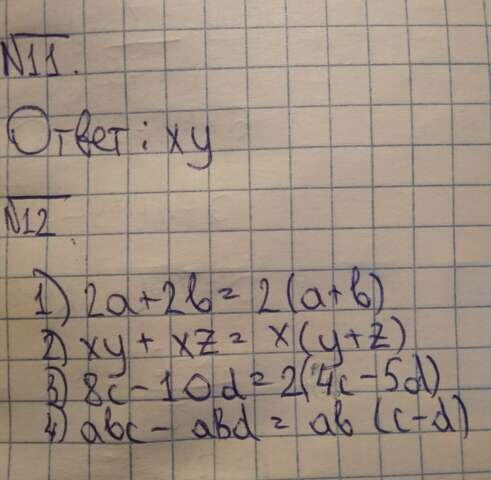 №11.
Ответ: xy
№12.
1) 2a+2b = 2(a+b)
2) xy + xz = x(y+z)
3) 8c - 10d = 2(4c-5d)
4) abc - abd = ab (c-d)